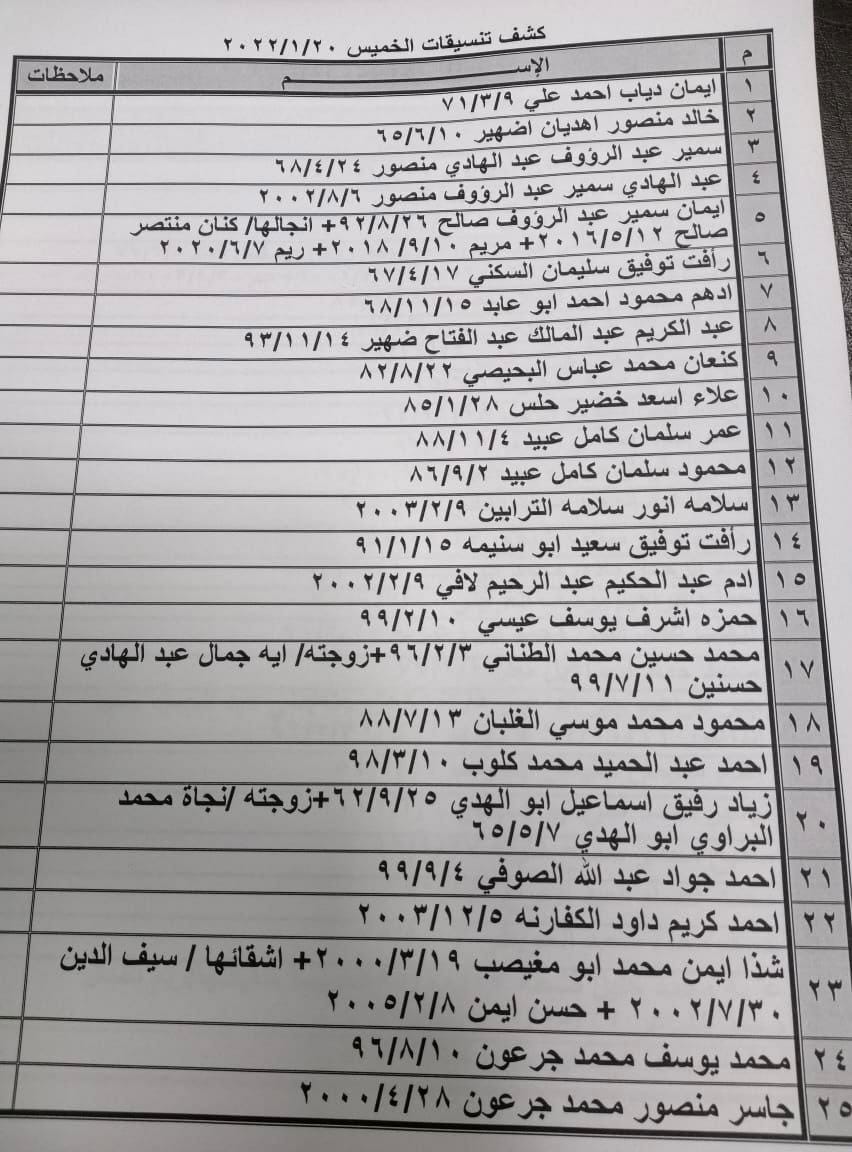 كشف تنسيقات الخميس ٢٠٢٢/١/٢٠
م الإســـــــــم ملاحظات
١ ايمان دياب احمد علي ٧١/٣/٩
٢ خالد منصور اهديان اضهير ٦٥/٦/١٠
٣ سمير عبد الرؤوف عبد الهادي منصور ٦٨/٤/٢٤
٤ عبد الهادي سمير عبد الرؤوف منصور ٢٠٠٢/٨/٦
٥ ايمان سمير عبد الرؤوف صالح ٩٢/٨/٢٦+ انجالها/ كنان منتصر
صالح ٢٠١٦/٥/١٢+ مريم ٢٠١٨/٩/١٠+ ريم ٢٠٢٠/٦/٧
٦ رأفت توفيق سليمان السكني ٦٧/٤/١٧
٧ ادهم محمود احمد ابو عابد ٦٨/١١/١٥
٨ عبد الكريم عبد المالك عبد الفتاح ضهير ٩٣/١١/١٤
٩ كنعان محمد عباس البحيصي ٨٢/٨/٢٢
١٠ علاء اسعد خضير حلس ٨٥/١/٢٨
١١ عمر سلمان كامل عبيد ٨٨/١١/٤
١٢ محمود سلمان كامل عبيد ٨٦/٩/٢
١٣ سلامه انور سلامه الترابين ٢٠٠٣/٢/٩
١٤ رأفت توفيق سعيد ابو سنيمه ٩١/١/١٥
١٥ ادم عبد الحكيم عبد الرحيم لافي ٢٠٠٢/٢/٩
١٦ حمزه اشرف يوسف عيسي ٩٩/٢/١٠
١٧ محمد حسين محمد الطناني ٩٦/٢/٣+زوجته/ ايه جمال عبد الهادي
حسنين ٩٩/٧/١١
١٨ محمود محمد موسي الغلبان ٨٨/٧/١٣
١٩ احمد عبد الحميد محمد كلوب ٩٨/٣/١٠
٢٠ زياد رفيق اسماعيل ابو الهدي ٦٢/٩/٢٥+زوجته /نجاة محمد
البراوي ابو الهدي ٦٥/٥/٧
٢١ احمد جواد عبد الله الصوفي ٩٩/٩/٤
٢٢ احمد كريم داود الكفارنه ٢٠٠٣/١٢/٥
٢٣ شذا ايمن محمد ابو مغيصب ٢٠٠٠/٣/١٩+ اشقائها / سيف الدين
٢٠٠٢/٧/٣٠ + حسن ايمن ٢٠٠٥/٢/٨
٢٤ محمد يوسف محمد جرعون ٩٦/٨/١٠
٢٥ جاسر منصور محمد جرعون ٢٠٠٠/٤/٢٨